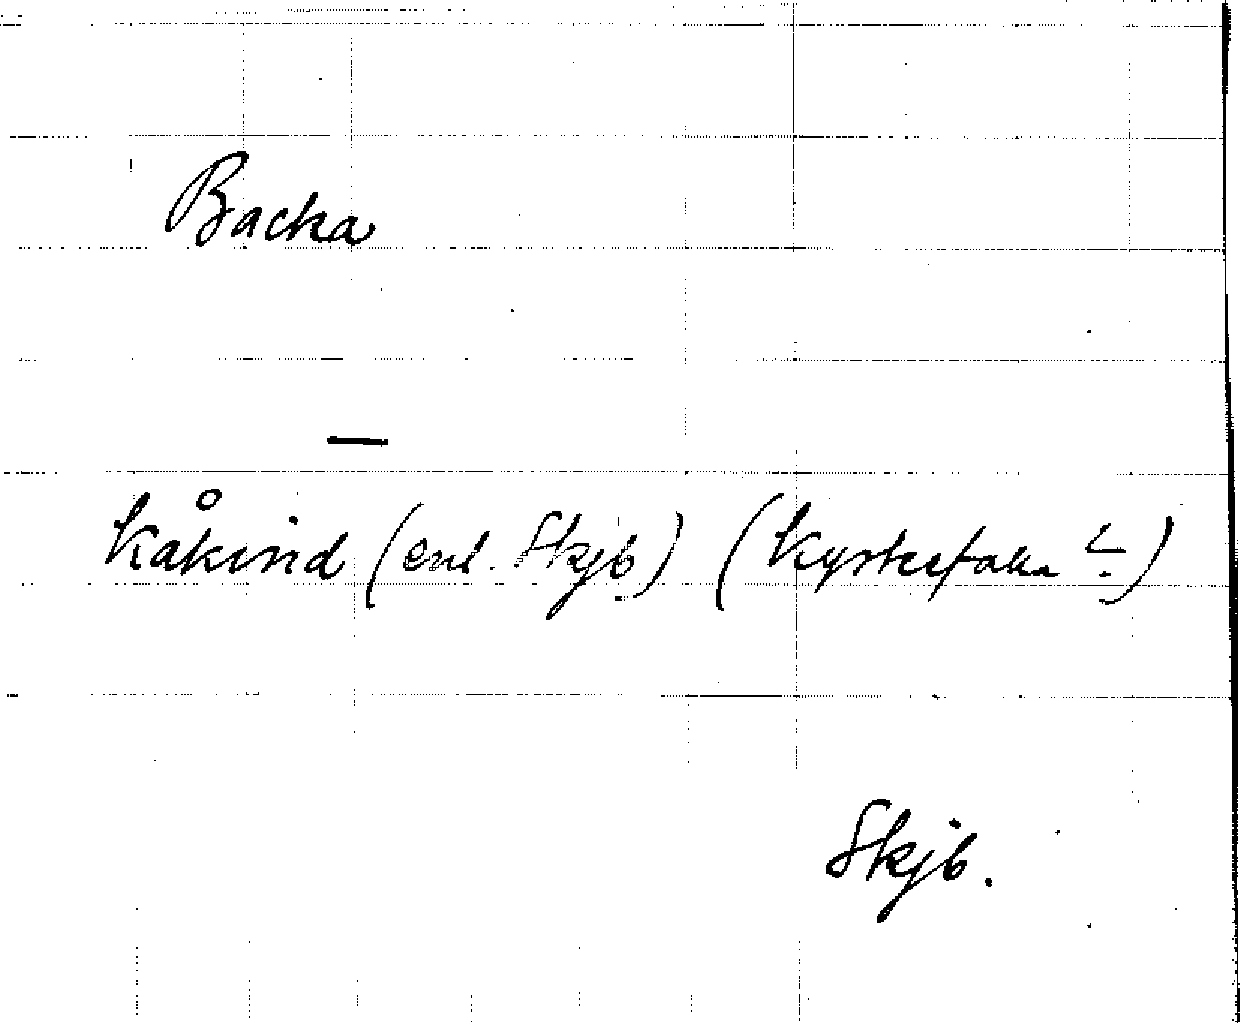 Backa
—
Kåkind (enl. Skjb) (Kyrkefalla
Skjb.